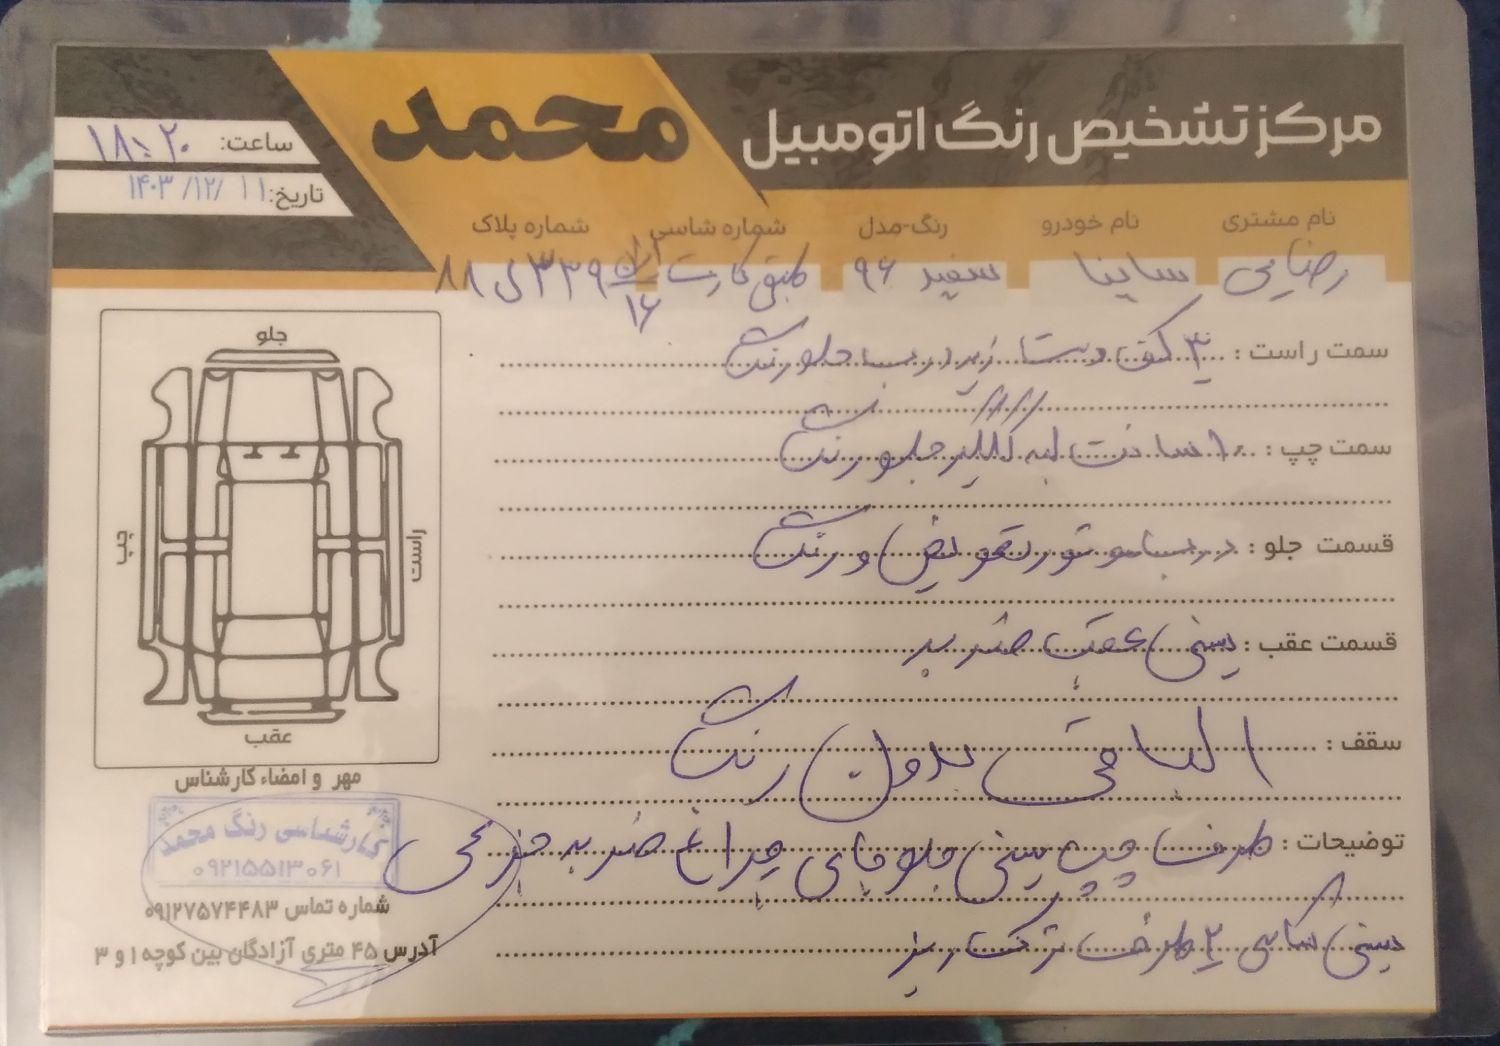 مرکز تشخیص رنگ اتومبیل محمد
ساعت: ۱۸:۲۰
تاریخ: ۱۴۰۳/۱۲/۱۱
نام مشتری نام خودرو رنگ-مدل شماره شاسی شماره پلاک
رضایی ساینا سفید ۹۶ طبق کارت ایران ۱۶ ۳۳۹ ی ۸۸
سمت راست : ۳ کف دست زیر درب جلو رنگ
سمت چپ : ۱۰ سانت لبه گلگیر جلو رنگ
قسمت جلو : درب موتور تعویض و رنگ
قسمت عقب : سینی عقب ضربه
سقف : الباقی بدون رنگ
توضیحات : طرف چپ سینی جلو جای چراغ ضربه جزئی
سینی شاسی ۲ طرف ترک ریز
جلو
چپ
راست
عقب
مهر و امضاء کارشناس
کارشناسی رنگ محمد
۰۹۲۱۵۵۱۳۰۶۱
شماره تماس ۰۹۱۲۷۵۷۴۴۸۳
آدرس ۴۵ متری آزادگان بین کوچه ۱ و ۳